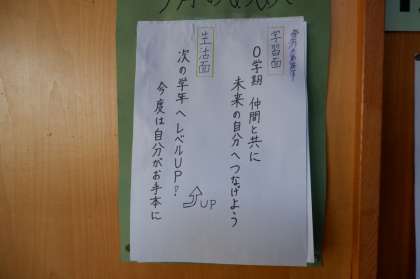 学習面
0学期 仲間と共に
未来の自分へつなげよう
生活面
次の学年へレベルUP?
今度は自分がお手本に
UP